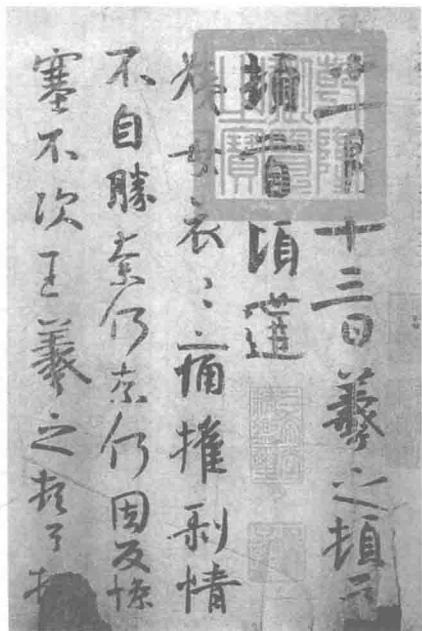 十一月十三日羲之頓首
頓首頃遘
姨母哀〻痛摧剝情
不自勝奈何奈何因反慘
塞不次王羲之頓首頓
乾隆御覽之寶